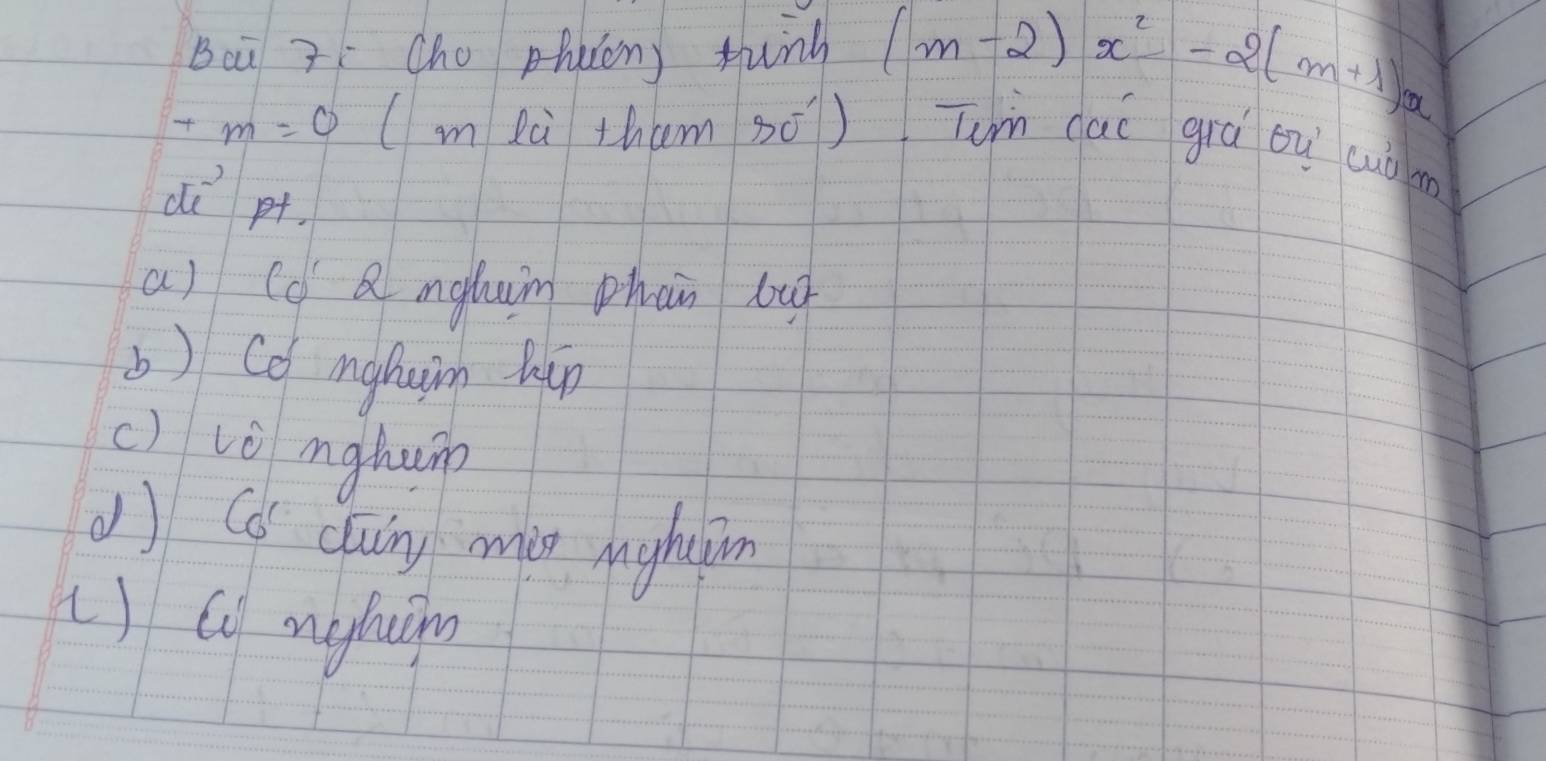 Bài 7: Cho phương trình (m-2) x² - 2(m+1)x
+ m = 0 (m là tham số). Tìm các giá trị của m
để pt.
a) Có 2 nghiệm phân biệt
b) Có nghiệm kép
c) Vô nghiệm
d) Có đúng một nghiệm
e) Có nghiệm